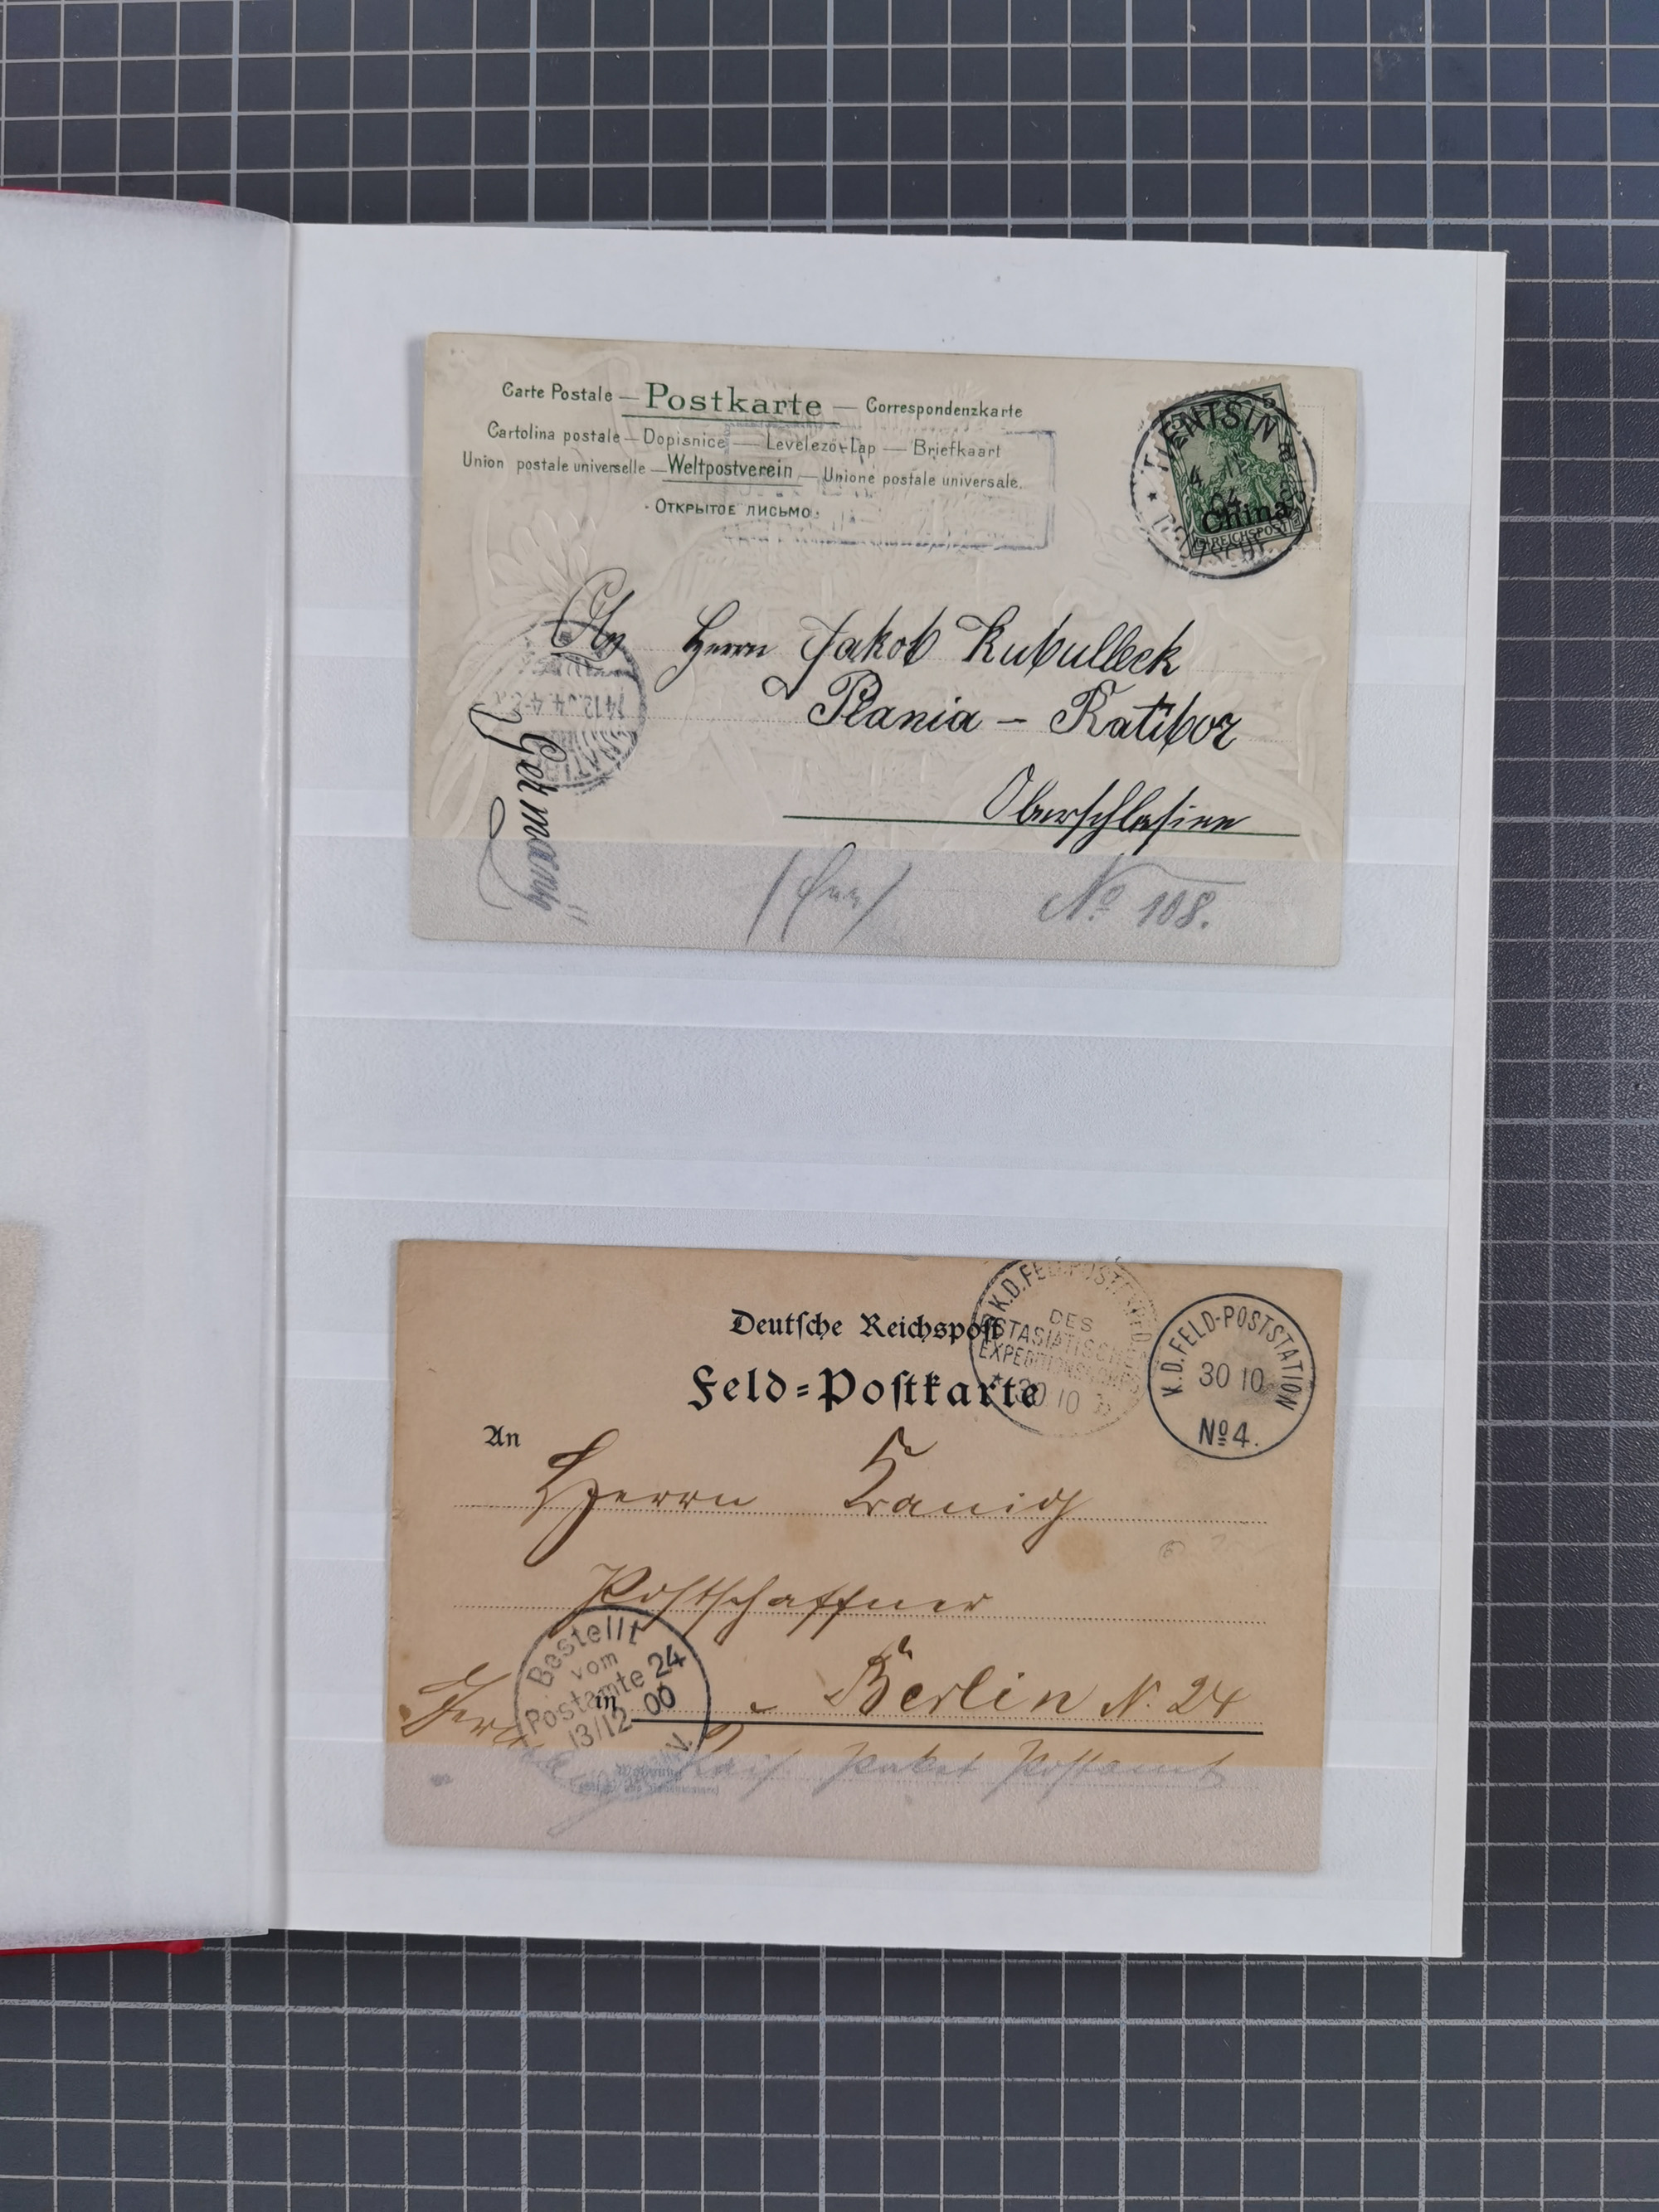 Carte Postale — Postkarte — Correspondenzkarte
Cartolina postale — Dopisnice — Levelező-Lap — Briefkaart
Union postale universelle — Weltpostverein — Unione postale universale.
Открытое письмо.
5
TIENTSIN
4
04
China
REICHSPOST
An Herrn Jakob Kubulleck
Plania - Ratibor
Oberschlesien
Germany
No 108.
14.12.04.4-5
Deutsche Reichspost
Feld-Postkarte
K.D. FELD-POSTEXPED.
DES
OSTASIATISCHEN
EXPEDITIONSKORPS
30 10
K.D. FELD-POSTSTATION
30 10
No 4.
An
Herrn Kranich
Postschaffner
Bestellt
vom
Postamte 24
13/12 00
in Berlin N. 24
Paket Postamt